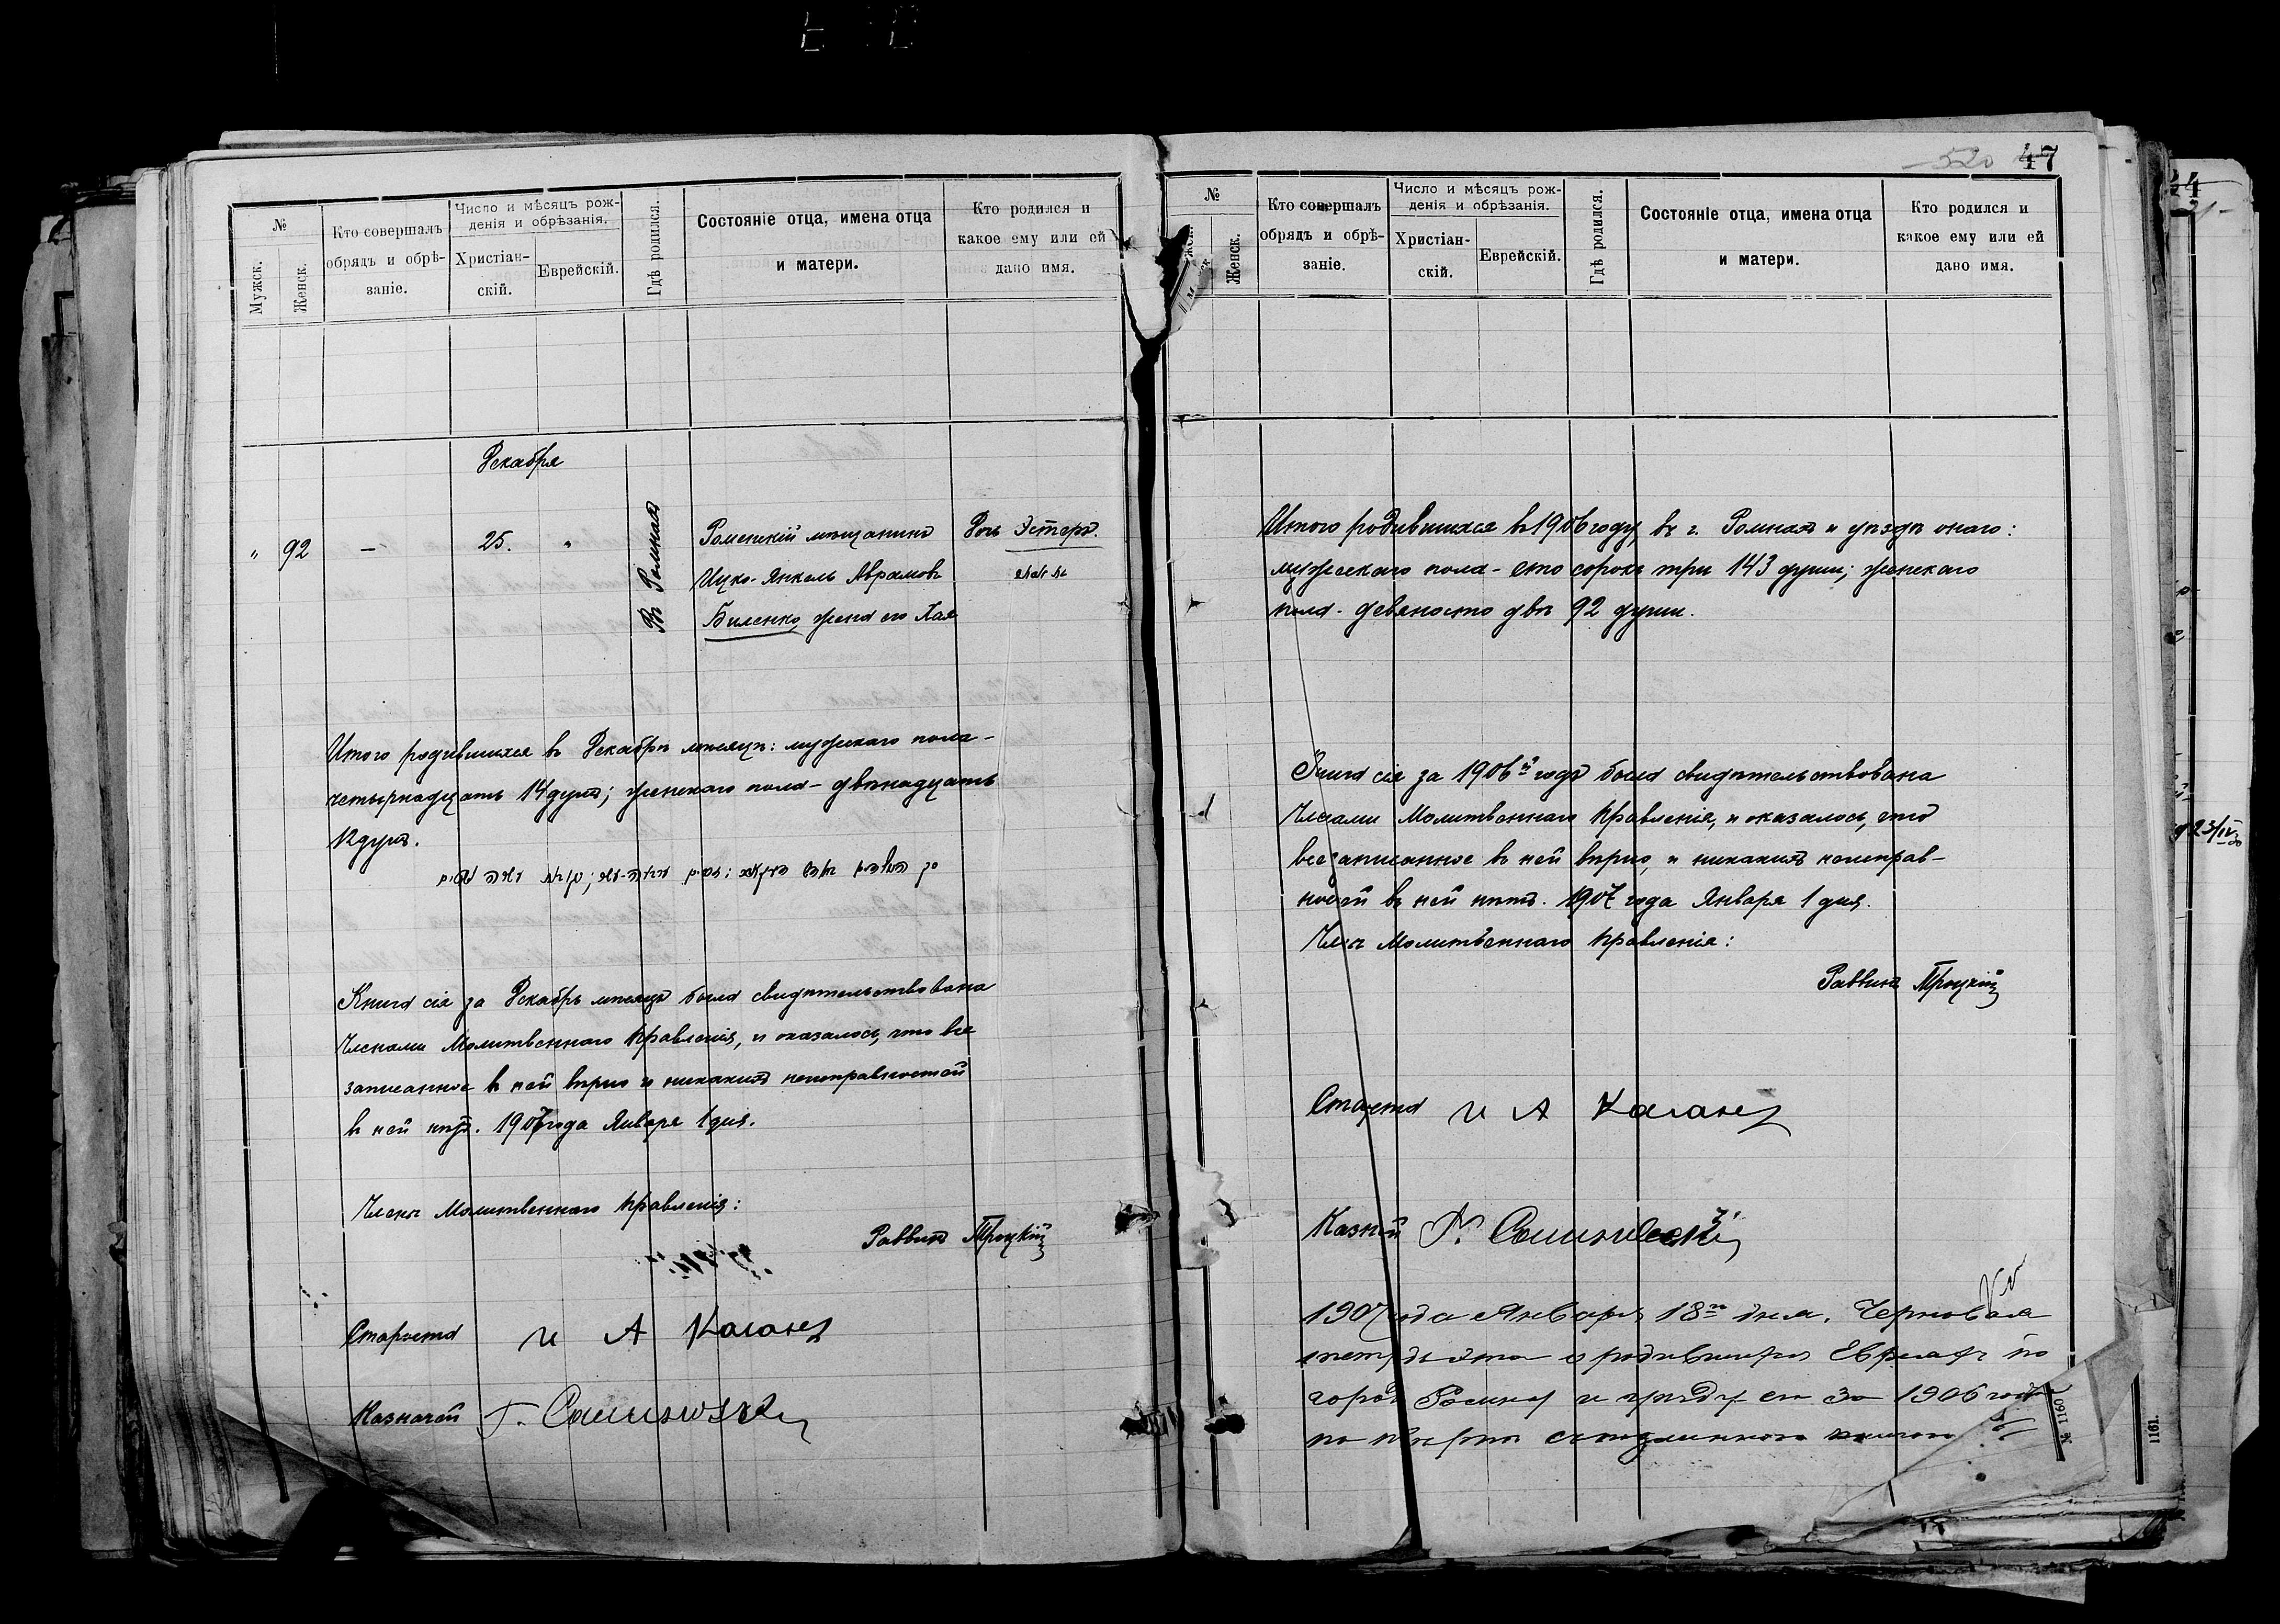 520 47
№
Мужск.
Женск.
Кто совершалъ
обрядъ и обрѣ-
заніе.
Число и мѣсяцъ рож-
денія и обрѣзанія.
Христіан-
скій.
Еврейскій.
Гдѣ родился.
Состояніе отца, имена отца
и матери.
Кто родился и
какое ему или ей
дано имя.
Декабря
" 92 — 25. "
Въ Ромнахъ
Роменскій мѣщанинъ
Ицко-Янкель Аврамовъ
Биленко жена его Хая
Дочь Эстеръ.
Итого родившихся въ Декабрѣ мѣсяцѣ: мужскаго пола-
четырнадцать 14 душъ; женскаго пола- двѣнадцать
12 душъ.
Книга сія за Декабрь мѣсяцъ была свидѣтельствована
Членами Молитвеннаго Правленія, и оказалось, что все
записанное въ ней вѣрно и никакихъ неисправностей
въ ней нѣтъ. 1907 года Января 1 дня.
Члены Молитвеннаго Правленія:
Раввинъ Троцкій
Староста И А Каганъ
Казначей
№
Женск.
Кто совершалъ
обрядъ и обрѣ-
заніе.
Число и мѣсяцъ рож-
денія и обрѣзанія.
Христіан-
скій.
Еврейскій.
Гдѣ родился.
Состояніе отца, имена отца
и матери.
Кто родился и
какое ему или ей
дано имя.
Итого родившихся въ 1906 году, въ г. Ромнахъ и уѣздѣ онаго:
мужескаго пола- сто сорокъ три 143 души; женскаго
пола- девяносто двѣ 92 души.
Книга сія за 1906й годъ была свидѣтельствована
Членами Молитвеннаго Правленія, и оказалось, что
все записанное въ ней вѣрно, и никакихъ неисправ-
ностей въ ней нѣтъ. 1907 года Января 1 дня.
Члены Молитвеннаго Правленія:
Раввинъ Троцкій
Староста И А Каганъ
Казнчй
1907 года Января 18го дня. Черновая
о родившихся Евреяхъ по
городу Ромну и уѣзду его за 1906 годъ
1160
1161.